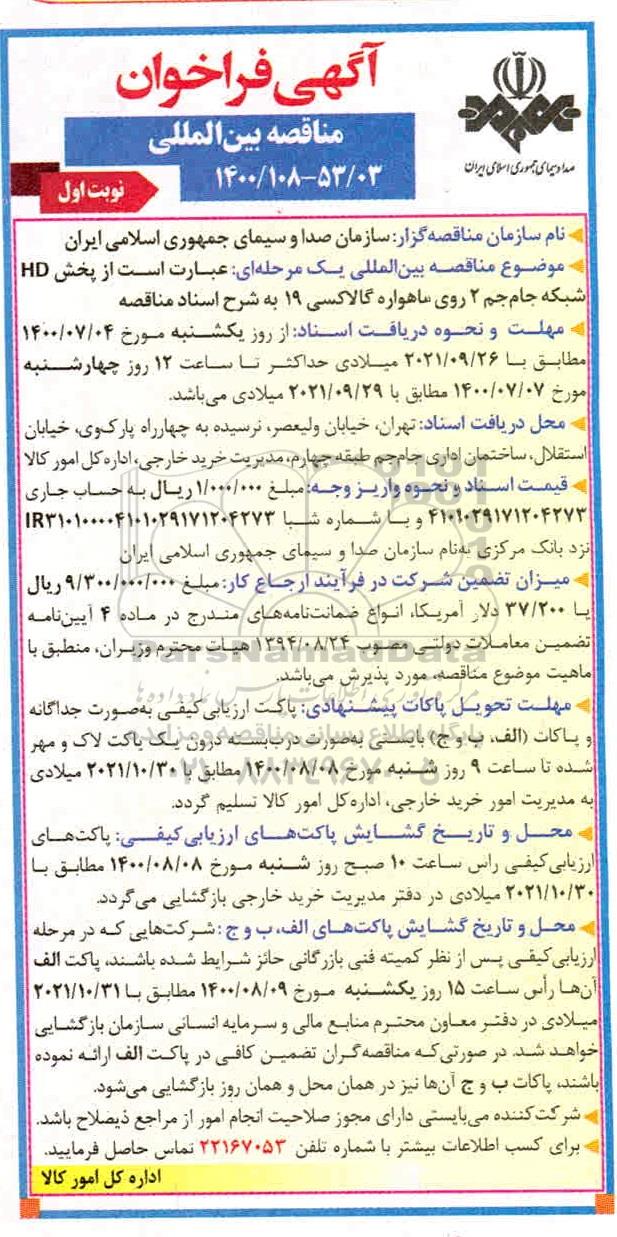 آگهی فراخوان
مناقصه بین‌المللی
۱۴۰۰/۱۰۸-۵۳/۰۳
نوبت اول
صدا و سیمای جمهوری اسلامی ایران
نام سازمان مناقصه‌گزار: سازمان صدا و سیمای جمهوری اسلامی ایران
موضوع مناقصه بین‌المللی یک مرحله‌ای: عبارت است از پخش HD
شبکه جام‌جم ۲ روی ماهواره گالاکسی ۱۹ به شرح اسناد مناقصه
مهلت و نحوه دریافت اسناد: از روز یکشنبه مورخ ۱۴۰۰/۰۷/۰۴
مطابق با ۲۰۲۱/۰۹/۲۶ میلادی حداکثر تا ساعت ۱۲ روز چهارشنبه
مورخ ۱۴۰۰/۰۷/۰۷ مطابق با ۲۰۲۱/۰۹/۲۹ میلادی می‌باشد.
محل دریافت اسناد: تهران، خیابان ولیعصر، نرسیده به چهارراه پارک‌وی، خیابان
استقلال، ساختمان اداری جام‌جم طبقه چهارم، مدیریت خرید خارجی، اداره کل امور کالا
قیمت اسناد و نحوه واریز وجه: مبلغ ۱/۰۰۰/۰۰۰ ریال به حساب جاری
۴۱۰۱۰۲۹۱۷۱۲۰۴۲۷۳ و با شماره شبا IR۳۱۰۱۰۰۰۰۴۱۰۱۰۲۹۱۷۱۲۰۴۲۷۳
نزد بانک مرکزی به‌نام سازمان صدا و سیمای جمهوری اسلامی ایران
میزان تضمین شرکت در فرآیند ارجاع کار: مبلغ ۹/۳۰۰/۰۰۰/۰۰۰ ریال
یا ۳۷/۲۰۰ دلار آمریکا، انواع ضمانت‌نامه‌های مندرج در ماده ۴ آیین‌نامه
تضمین معاملات دولتی مصوب ۱۳۹۴/۰۸/۲۴ هیات محترم وزیران، منطبق با
ماهیت موضوع مناقصه، مورد پذیرش می‌باشد.
مهلت تحویل پاکات پیشنهادی: پاکت ارزیابی کیفی به‌صورت جداگانه
و پاکات (الف، ب و ج) بایستی به‌صورت درب‌بسته درون یک پاکت لاک و مهر
شده تا ساعت ۹ روز شنبه مورخ ۱۴۰۰/۰۸/۰۸ مطابق با ۲۰۲۱/۱۰/۳۰ میلادی
به مدیریت امور خرید خارجی، اداره کل امور کالا تسلیم گردد.
محل و تاریخ گشایش پاکت‌های ارزیابی کیفی: پاکت‌های
ارزیابی کیفی راس ساعت ۱۰ صبح روز شنبه مورخ ۱۴۰۰/۰۸/۰۸ مطابق با
۲۰۲۱/۱۰/۳۰ میلادی در دفتر مدیریت خرید خارجی بازگشایی می‌گردد.
محل و تاریخ گشایش پاکت‌های الف، ب و ج: شرکت‌هایی که در مرحله
ارزیابی کیفی پس از نظر کمیته فنی بازرگانی حائز شرایط شده باشند، پاکت الف
آن‌ها رأس ساعت ۱۵ روز یکشنبه مورخ ۱۴۰۰/۰۸/۰۹ مطابق با ۲۰۲۱/۱۰/۳۱
میلادی در دفتر معاون محترم منابع مالی و سرمایه انسانی سازمان بازگشایی
خواهد شد. در صورتی‌که مناقصه‌گران تضمین کافی در پاکت الف ارائه نموده
باشند، پاکات ب و ج آن‌ها نیز در همان محل و همان روز بازگشایی می‌شود.
شرکت‌کننده می‌بایستی دارای مجوز صلاحیت انجام امور از مراجع ذیصلاح باشد.
برای کسب اطلاعات بیشتر با شماره تلفن ۲۲۱۶۷۰۵۳ تماس حاصل فرمایید.
اداره کل امور کالا
ParsNamadData
پایگاه اطلاع رسانی مناقصه و مزایده
۰۲۱-۸۸۳۴۹۶۷۰-۵